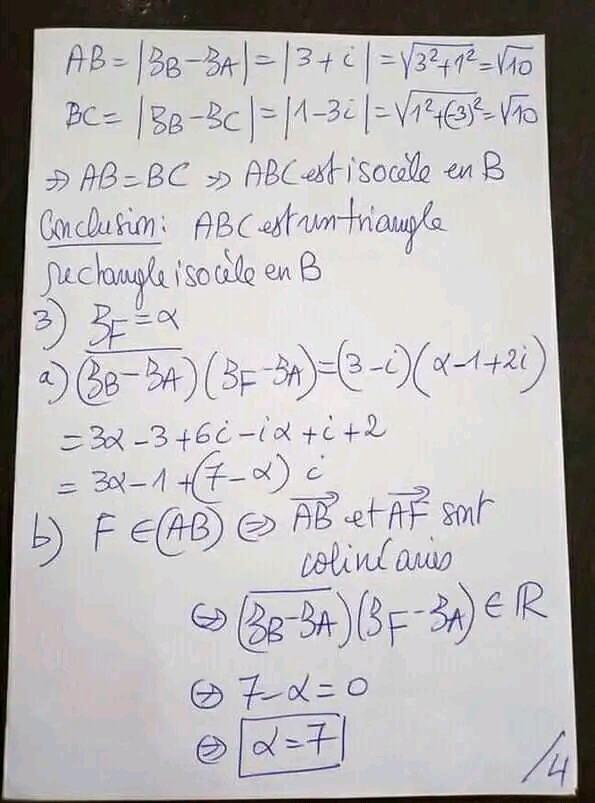 AB = |zB − zA| = |3 + i| = √(3²+1²) = √10
BC = |zB − zC| = |1 − 3i| = √(1²+(-3)²) = √10
⇒ AB = BC ⇒ ABC est isocèle en B
Conclusion: ABC est un triangle
rectangle isocèle en B
3) zF = α
a) (z̅B̅ ̅−̅ ̅z̅A̅)(zF − zA) = (3 − i)(α − 1 + 2i)
= 3α − 3 + 6i − iα + i + 2
= 3α − 1 + (7 − α) i
b) F ∈ (AB) ⇔ A⃗B⃗ et A⃗F⃗ sont
colinéaires
⇔ (z̅B̅ ̅−̅ ̅z̅A̅)(zF − zA) ∈ ℝ
⇔ 7 − α = 0
⇔ α = 7
/4